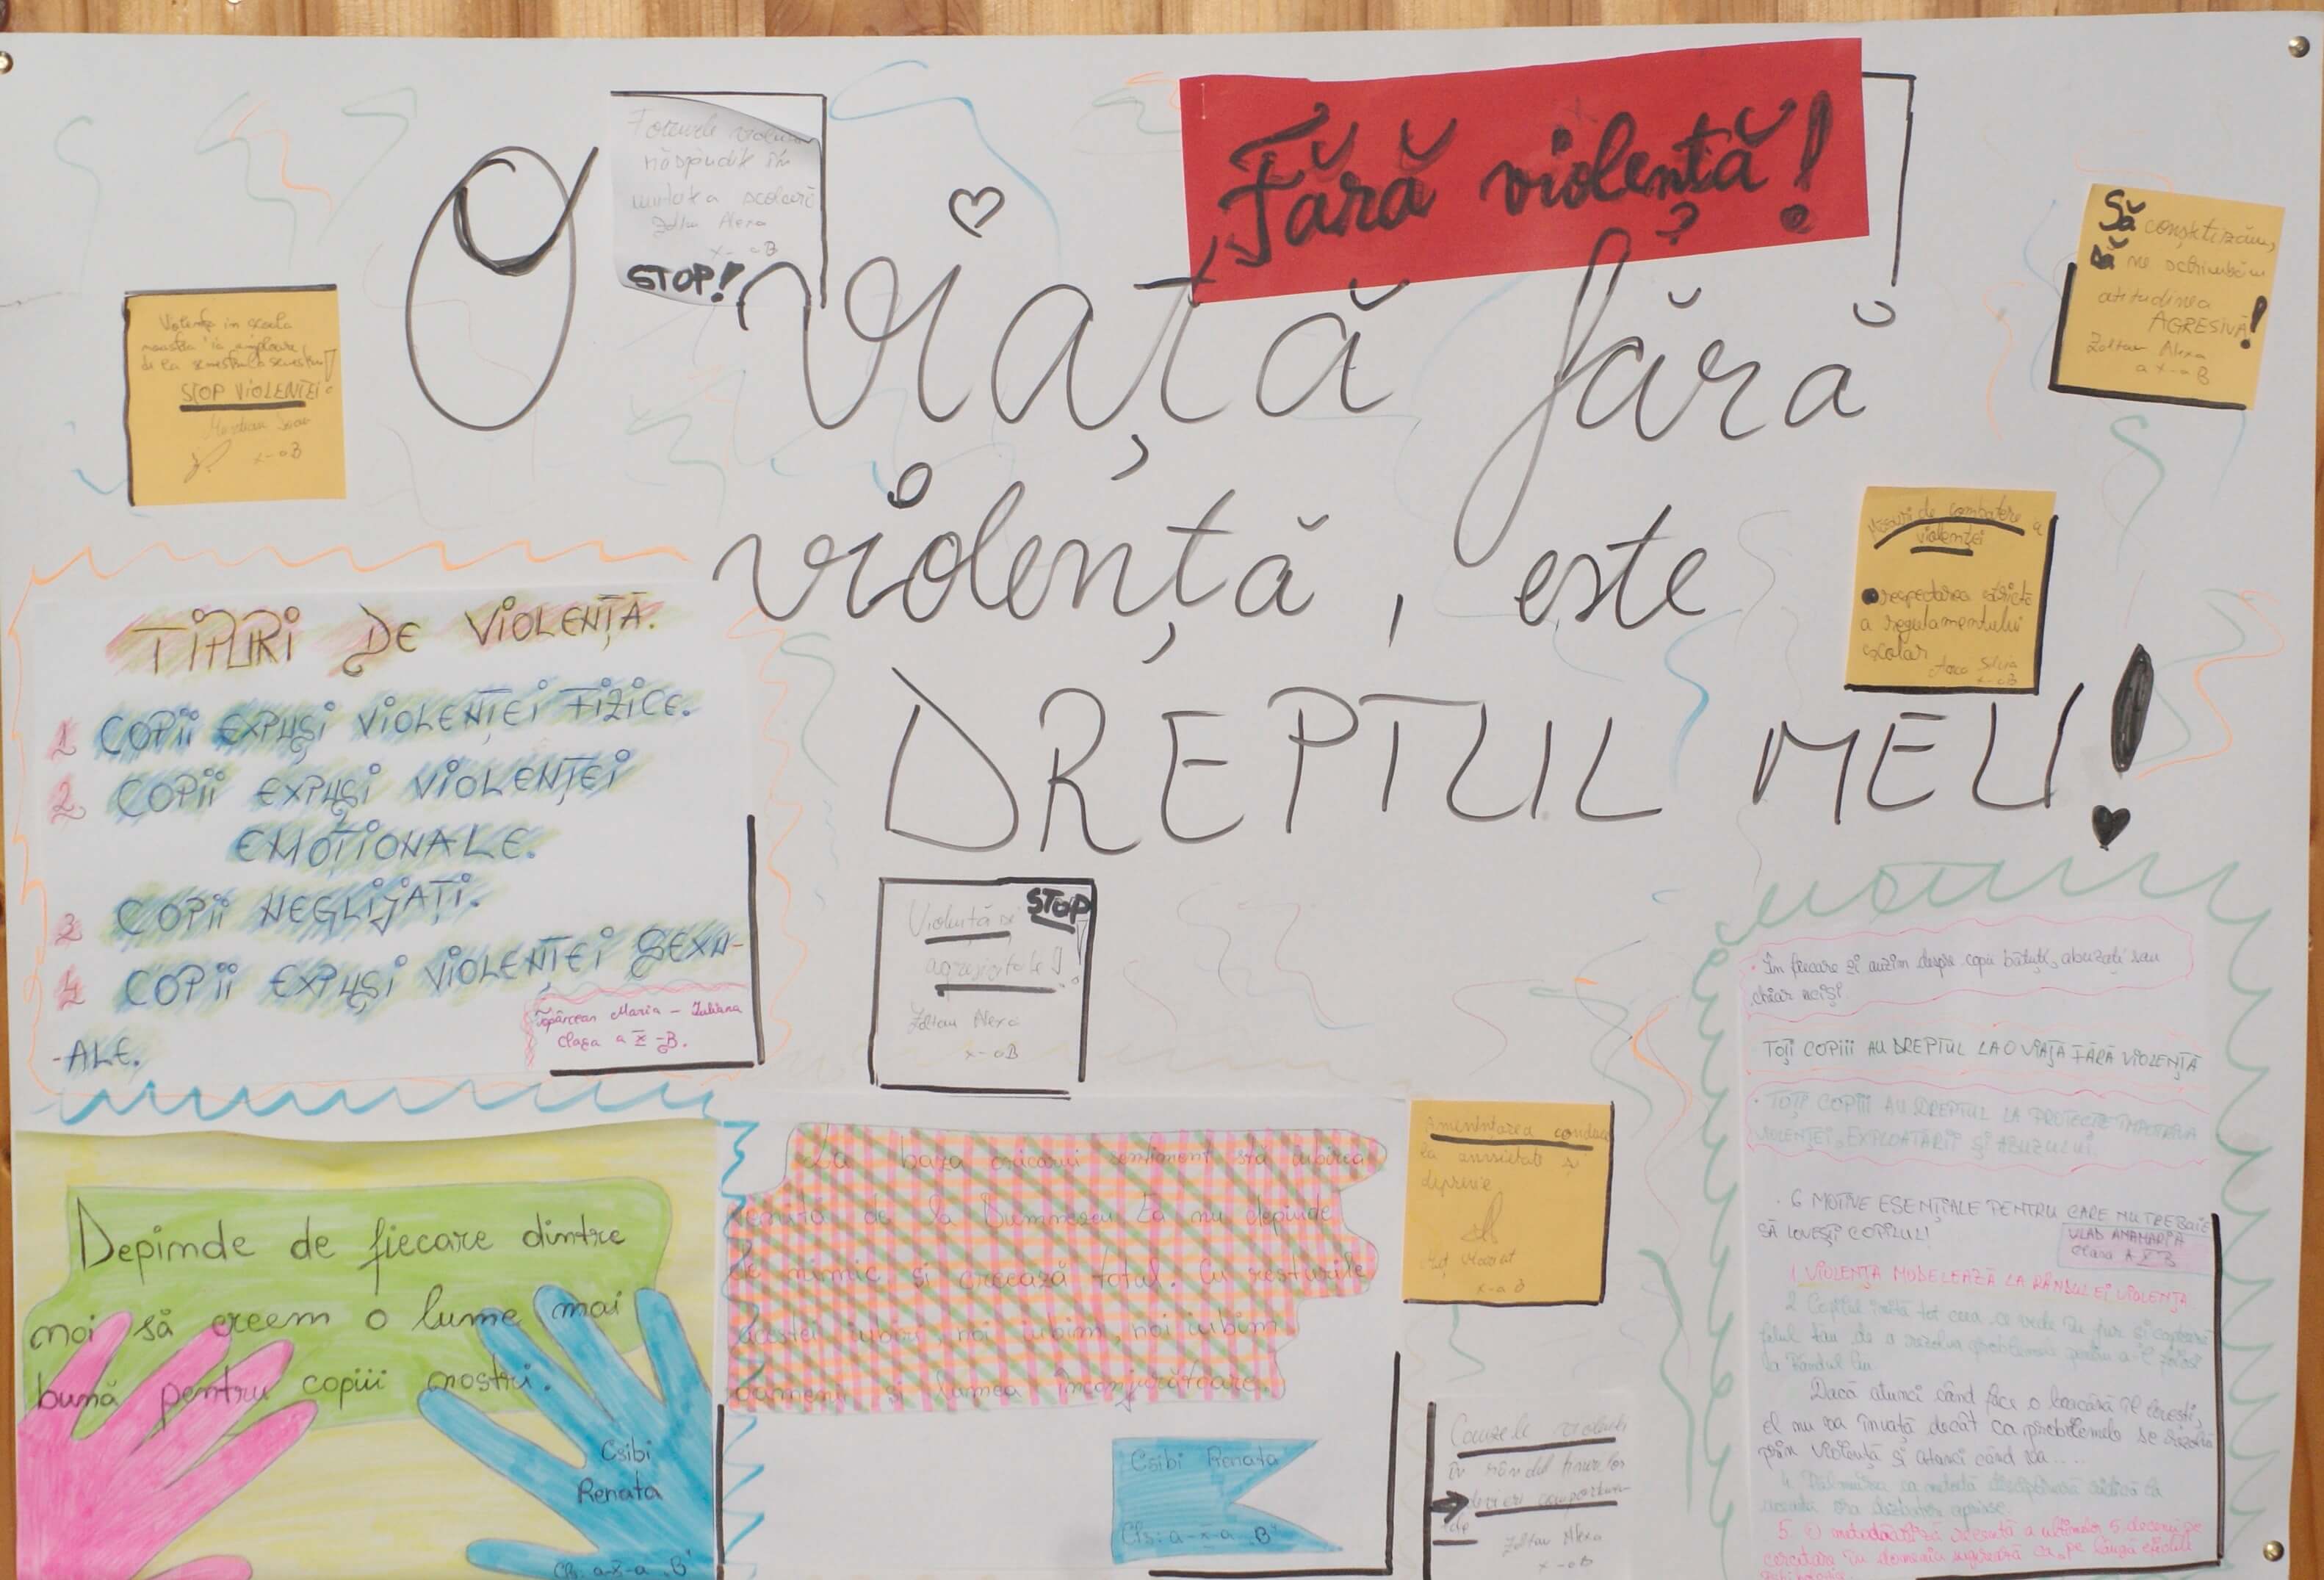 Fără violență!
O viață fără
violență, este
DREPTUL MEU!
răspândite în
școlară
Zoltan Alexa
x-aB
STOP!
Violența în școala
noastră ia amploare
de la semestru la semestru!
STOP VIOLENȚEI
x-aB
Să conștientizăm,
să ne schimbăm
atitudinea
AGRESIVĂ!
Zoltan Alexa
a x-a B
Măsuri de combatere a
violenței
respectarea strictă
a regulamentului
școlar
Silvia
x-aB
TIPURI DE VIOLENȚĂ.
1 COPII EXPUȘI VIOLENȚEI FIZICE.
2 COPII EXPUȘI VIOLENȚEI
EMOȚIONALE.
3 COPII NEGLIJAȚI.
4 COPII EXPUȘI VIOLENȚEI SEXU-
-ALE.
Topârcean Maria - Iuliana
clasa a X-B.
STOP
Violență
Zoltan Alexa
x-aB
Depinde de fiecare dintre
noi să creem o lume mai
bună pentru copiii noștri.
Csibi
Renata
Cls. a-X-a „B"
La baza oricărui sentiment stă iubirea
venită de la Dumnezeu. Ea nu depinde
de nimic și creează totul. Cu resturile
acestei iubiri, noi iubim, noi iubim
oamenii și lumea înconjurătoare.
Csibi Renata
Cls: a-X-a „B"
Amenințarea conduce
la anxietate și
depresie
x-a B
Cauzele violenței
în rândul tinerilor
devieri
Zoltan Alexa
x-aB
În fiecare zi auzim despre copii bătuți, abuzați sau
chiar uciși
TOȚI COPIII AU DREPTUL LA O VIAȚĂ FĂRĂ VIOLENȚĂ
TOȚI COPIII AU DREPTUL LA PROTECȚIE ÎMPOTRIVA
VIOLENȚEI, EXPLOATĂRII ȘI ABUZULUI.
6 MOTIVE ESENȚIALE PENTRU CARE NU TREBUIE
SĂ LOVEȘTI COPILUL!
VLAD ANAMARIA
Clasa A X B
1 VIOLENȚA MODELEAZĂ LA RÂNDUL EI VIOLENȚA.
2 Copilul imită tot ceea ce vede în jur și copiază
felul tău de a rezolva problemele
la rândul lui
Dacă atunci când face o boacănă îl lovești,
el nu va învăța decât ca problemele se rezolvă
prin violență și atunci când va....
5. O a ultimelor 5 decenii de
cercetare în domeniu sugerează ca, pe lângă efectele